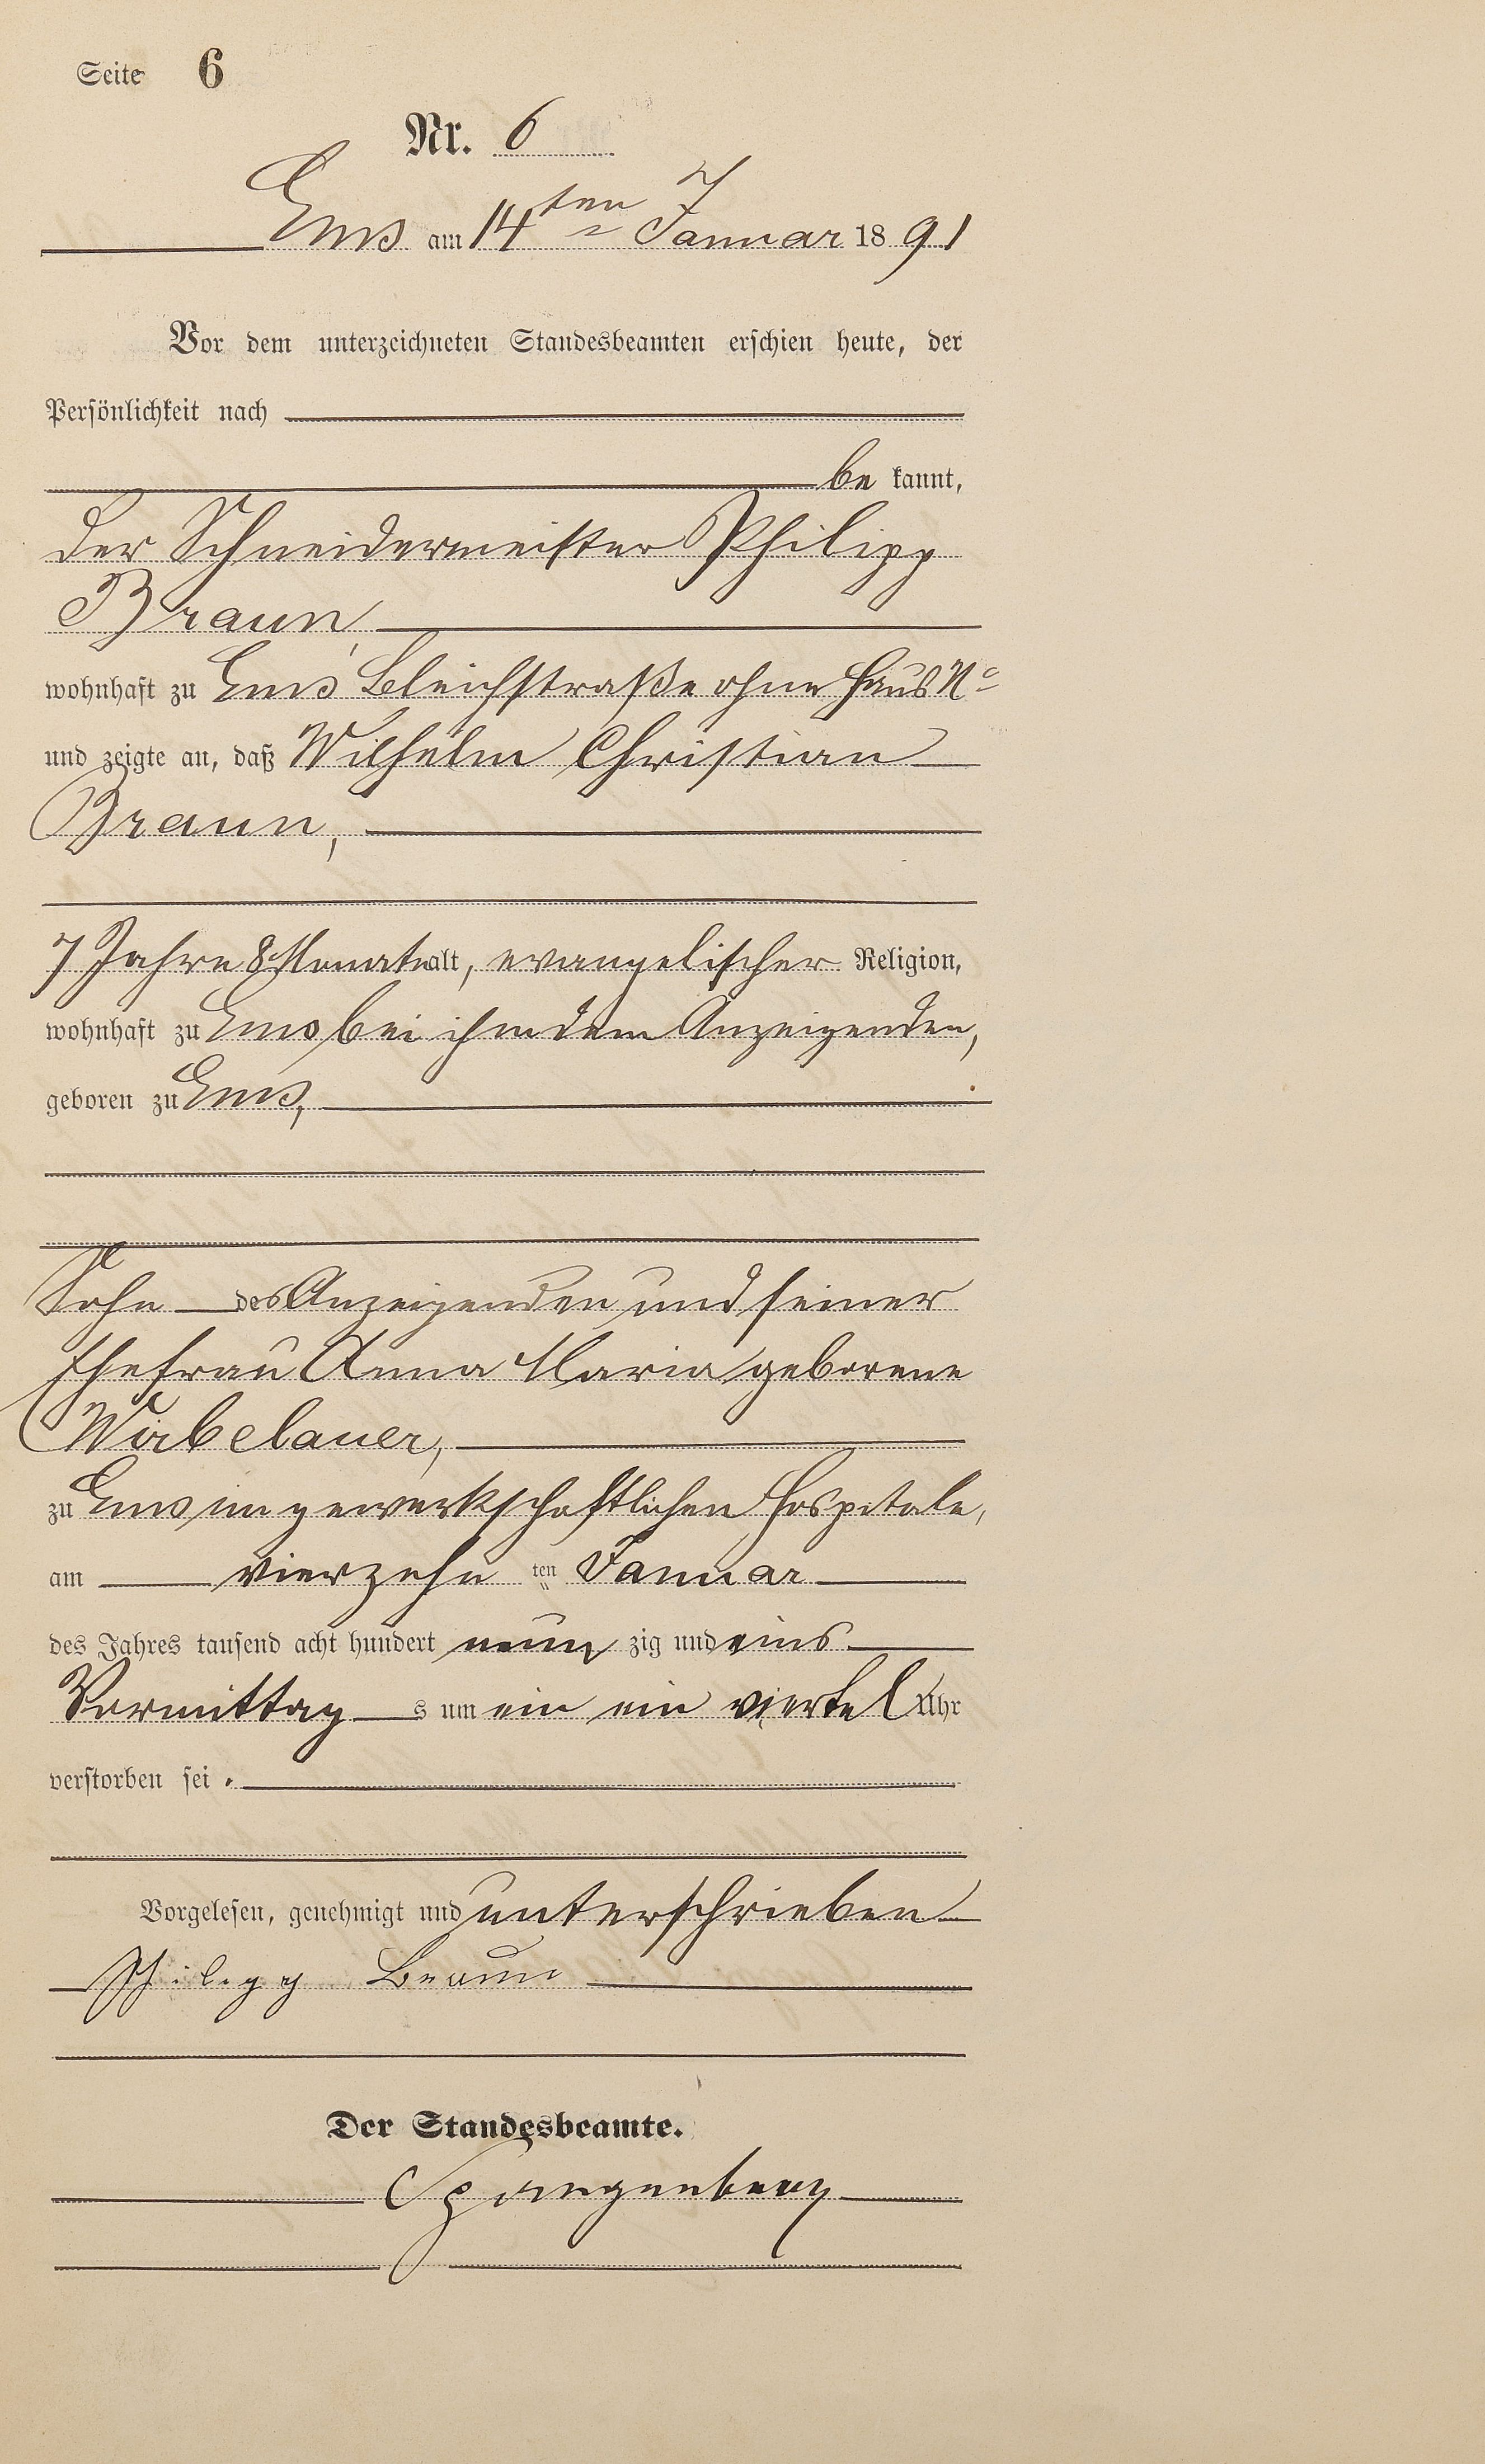 Seite 6
Nr. 6
Ems am 14ten Januar 1891
Vor dem unterzeichneten Standesbeamten erschien heute, der
Persönlichkeit nach
be kannt,
der Schneidermeister Philipp
Braun,
wohnhaft zu Ems Bleichstraße ohne Haus No
und zeigte an, daß Wilhelm Christian
Braun,
7 Jahre 8 Monate alt, evangelischer Religion,
wohnhaft zu Ems bei ihm dem Anzeigenden,
geboren zu Ems,
Sohn des Anzeigenden und seiner
Ehefrau Anna Maria geborene
zu Ems im gewerkschaftlichen Hospitale,
am vierzehn ten Januar
des Jahres tausend acht hundert neun zig und eins
Vormittag s um ein ein viertel Uhr
verstorben sei.
Vorgelesen, genehmigt und unterschrieben
Philipp Braun
Der Standesbeamte.
Spangenberg